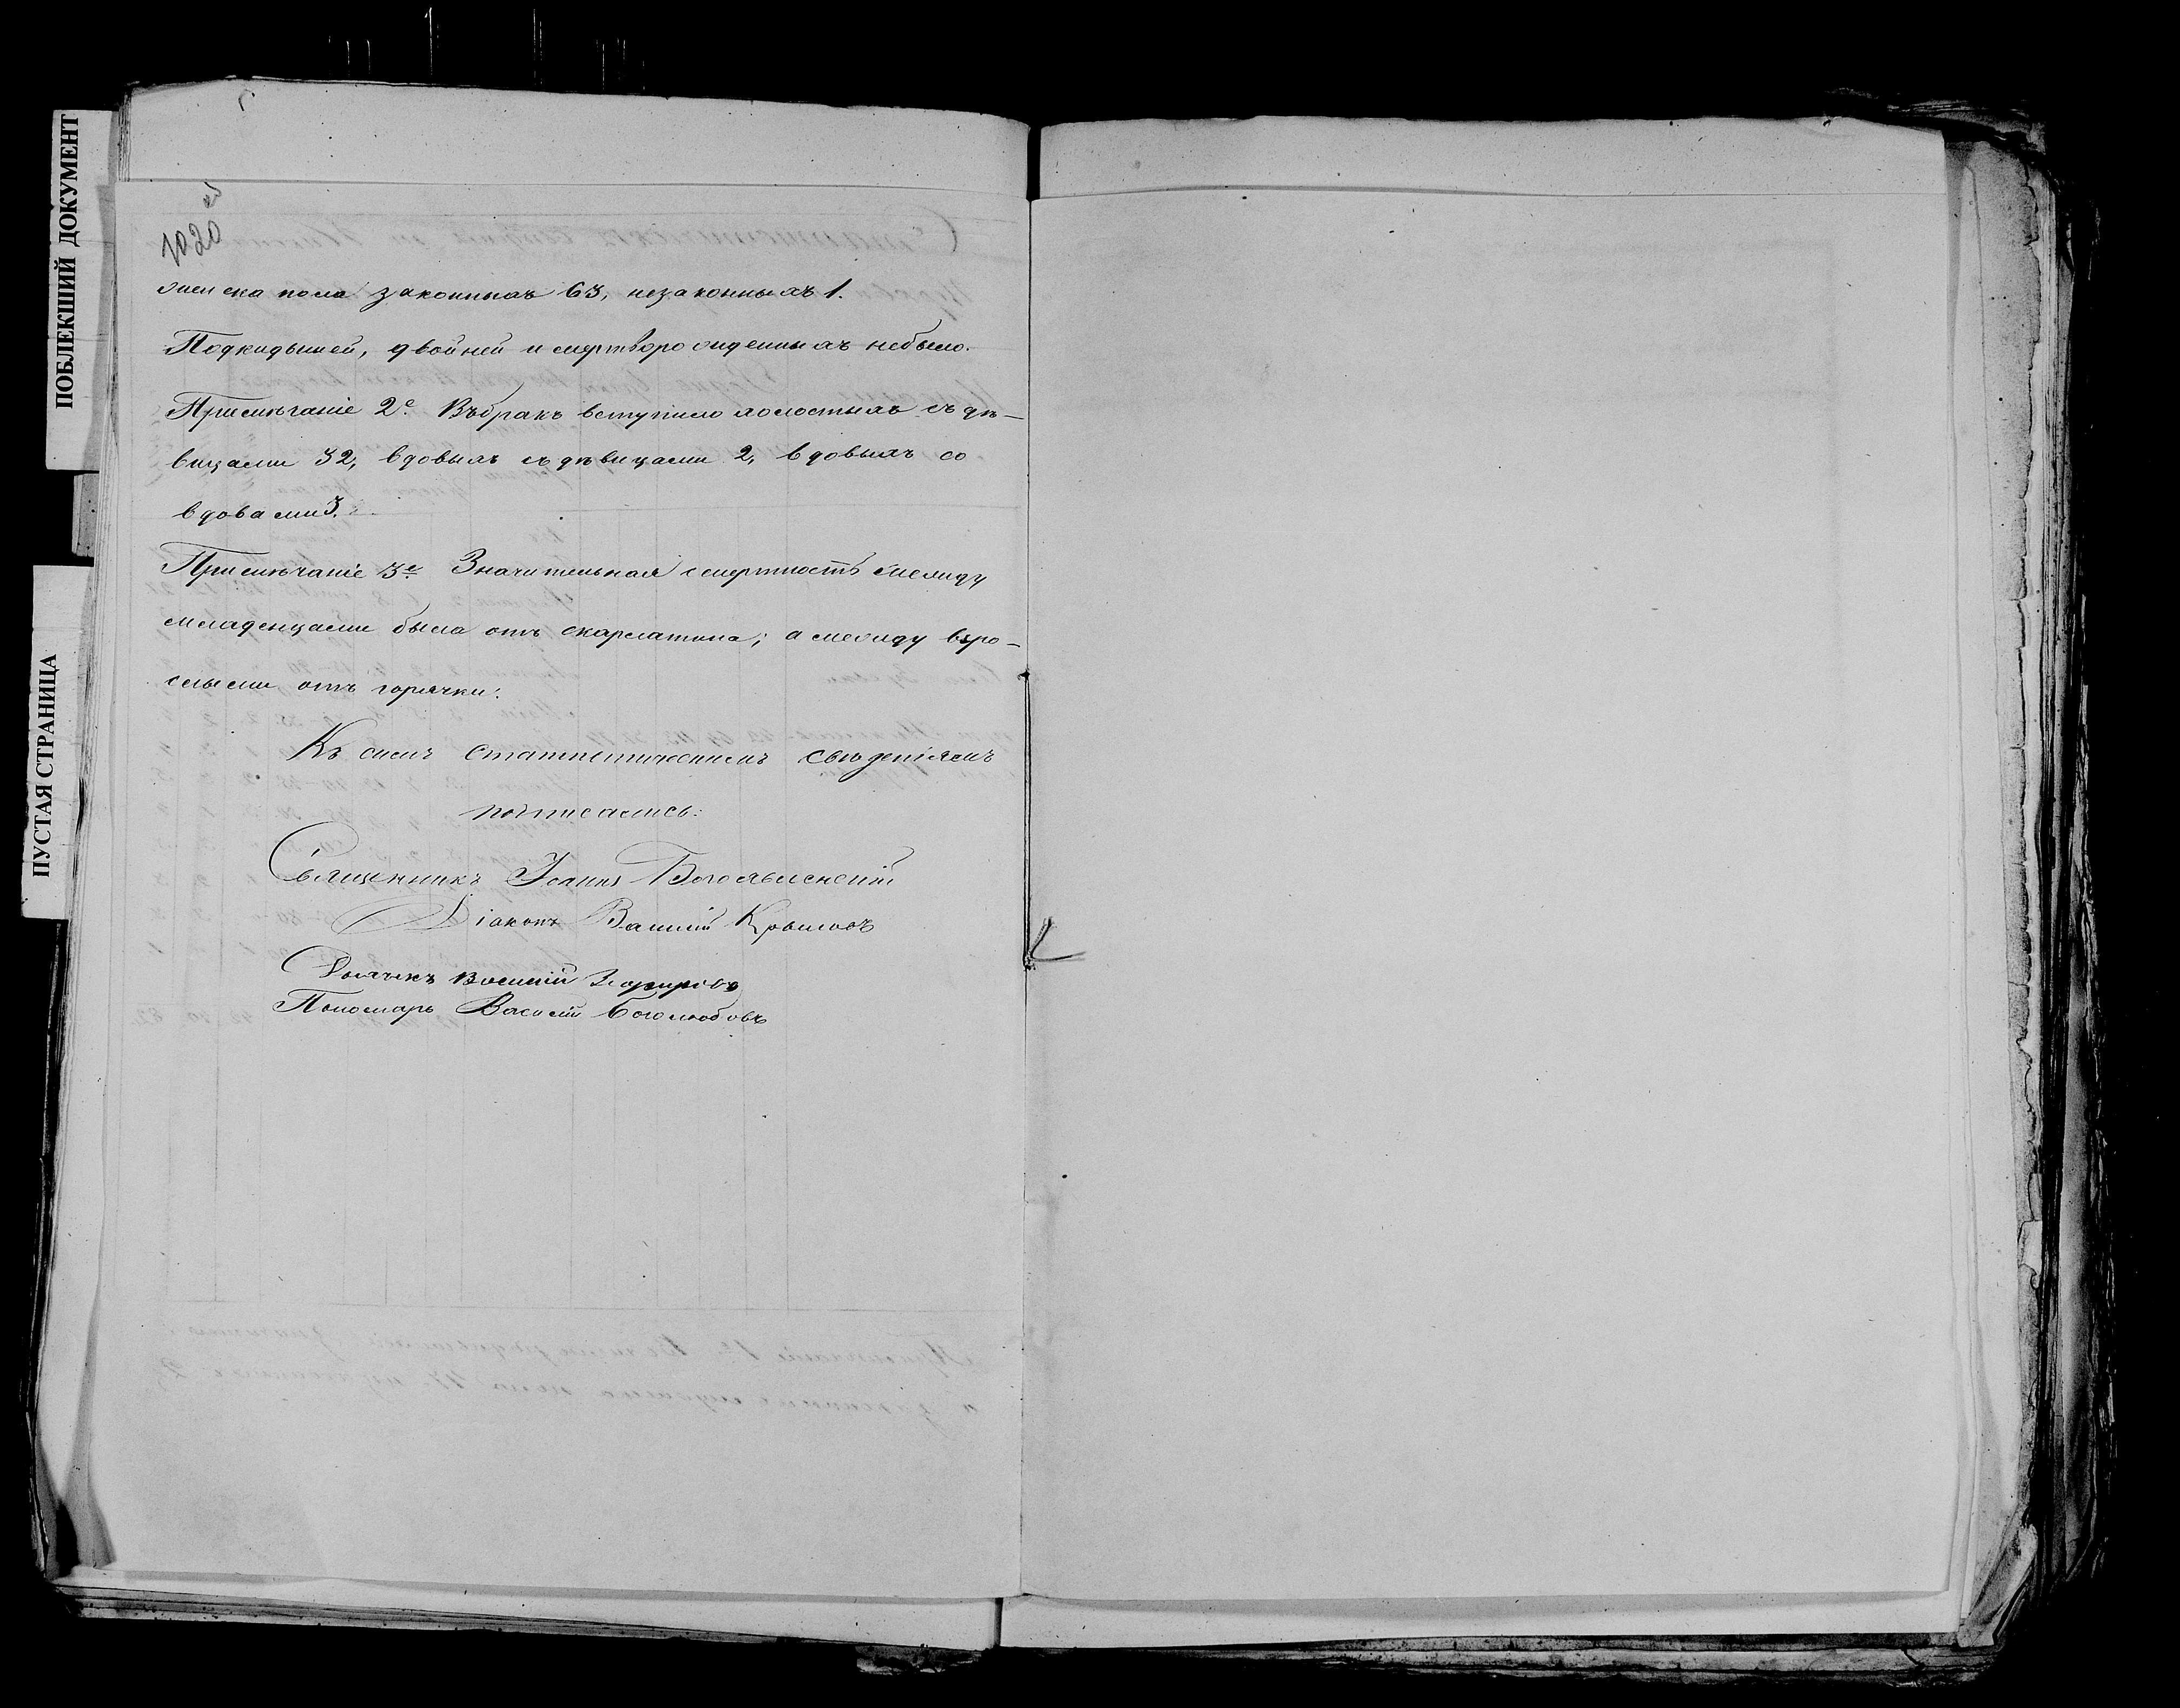 ПОБЛЕКШИЙ ДОКУМЕНТ
ПУСТАЯ СТРАНИЦА
1020 об
женска пола законныхъ 63, незаконныхъ 1.
Подкидышей, двойней и мертворожденныхъ небыло.
Примѣчаніе 2е Въбракъ вступило холостыхъ съ дѣ-
вицами 32, вдовыхъ съ дѣвицами 2, вдовыхъ со
вдовами 3.
Примѣчаніе 3е Значительная смертность между
младенцами была отъ скарлатина; а между взро-
слыми отъ горячки.
Къ симъ статистическимъ свѣденіямъ
подписались:
Священникъ Іоаннъ Богоявленскій
Діаконъ Василій Крыловъ
Дьячекъ Василій
Пономарь Василій Боголюбовъ